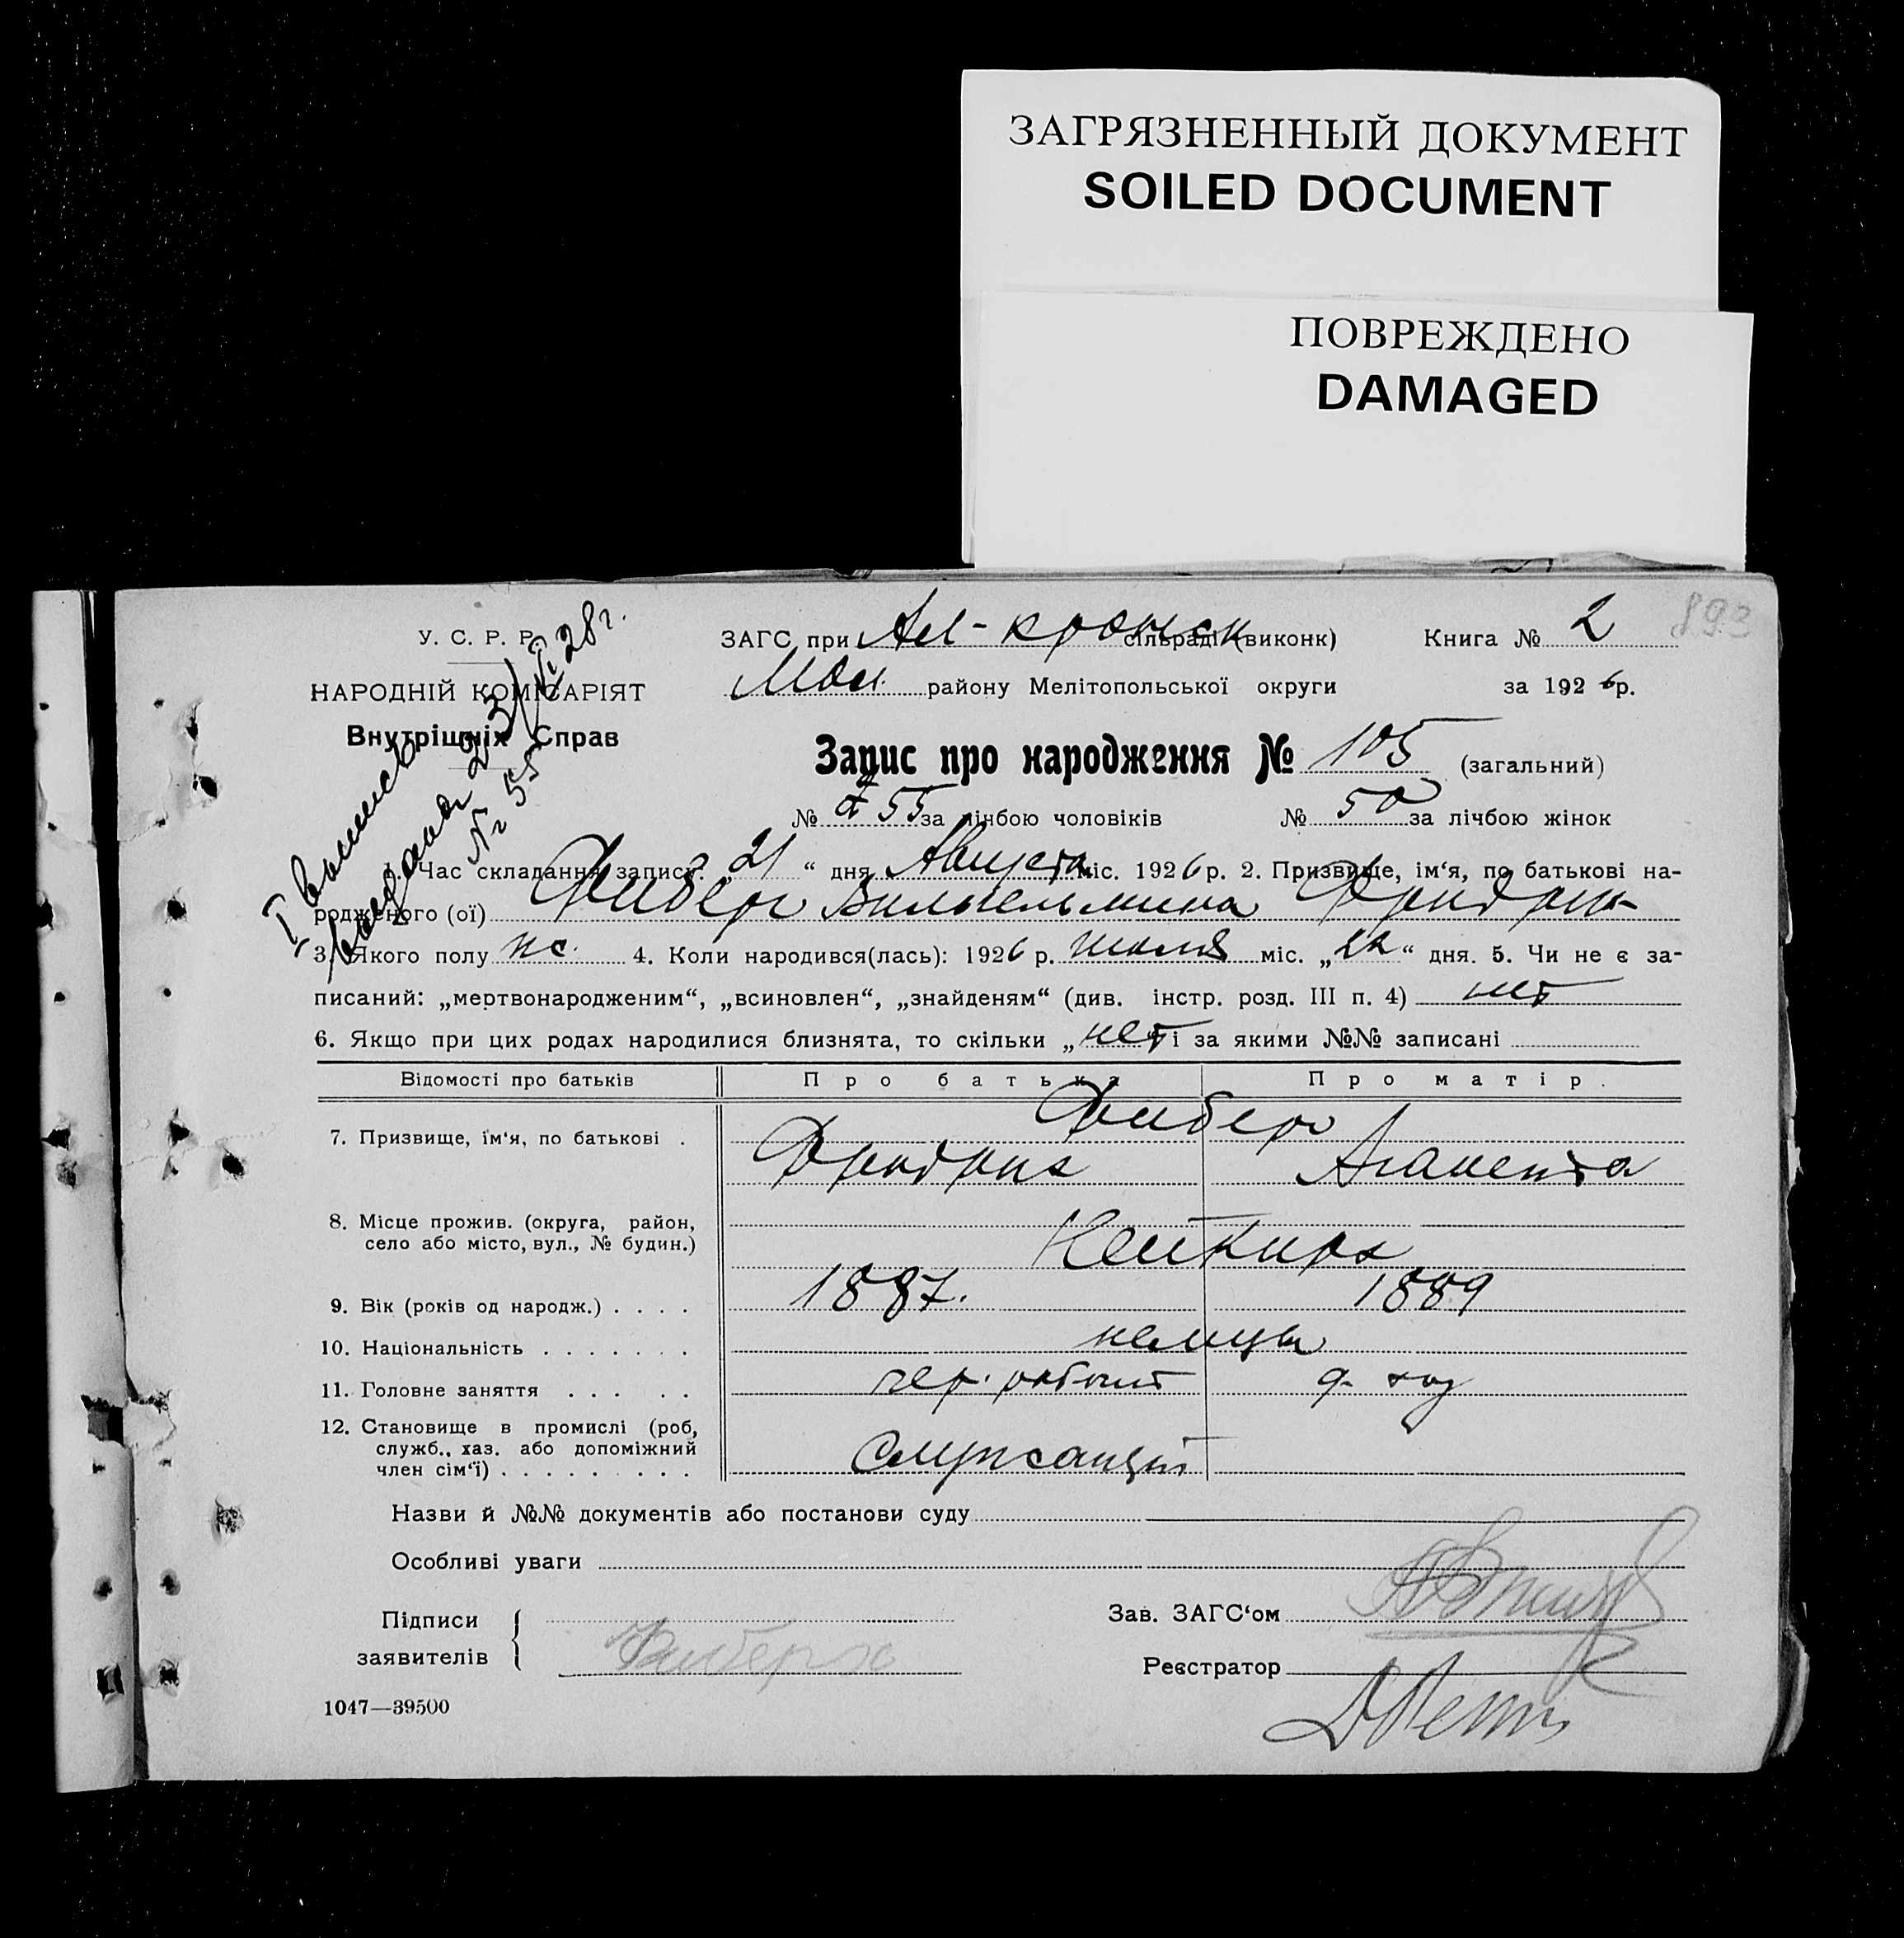 ЗАГРЯЗНЕННЫЙ ДОКУМЕНТ
SOILED DOCUMENT
ПОВРЕЖДЕНО
DAMAGED
893
У. С. Р. Р.
НАРОДНІЙ КОМІСАРІЯТ
Внутрішніх Справ
I выпись
выдана 23/VI 28 г.
№ 55
ЗАГС при Ал-кронск сільраді (виконк) Книга № 2
Мол. району Мелітопольської округи за 1926 р.
Запис про народження № 105 (загальний)
№ 55 за лічбою чоловіків № 50 за лічбою жінок
1. Час складання запису: „21“ дня Августа міс. 1926 р. 2. Призвище, ім‘я, по батькові на-
родженого (ої) Фибер Вильгельмина Фридрих
3. Якого полу ж. 4. Коли народився(лась): 1926 р. июля міс. „22“ дня. 5. Чи не є за-
писаний: „мертвонародженим“, „всиновлен“, „знайденям“ (див. інстр. розд. III п. 4) нет
6. Якщо при цих родах народилися близнята, то скільки „нет“ і за якими №№ записані
Відомості про батьків Про батька Про матір.
7. Призвище, ім‘я, по батькові . Фибер
Фридрих Аганента
8. Місце прожив. (округа, район,
село або місто, вул., № будин.) Нейкирх
9. Вік (років од народж.) . . . . 1887. 1889
10. Національність . . . . . . . немцы
11. Головне заняття . . . . . чер. работ д. хоз
12. Становище в промислі (роб,
служб., хаз. або допоміжний
член сім‘ї) . . . . . . . . . Служащий
Назви й №№ документів або постанови суду
Особливі уваги
Підписи
заявителів
Зав. ЗАГС‘ом
Реєстратор
1047—39500